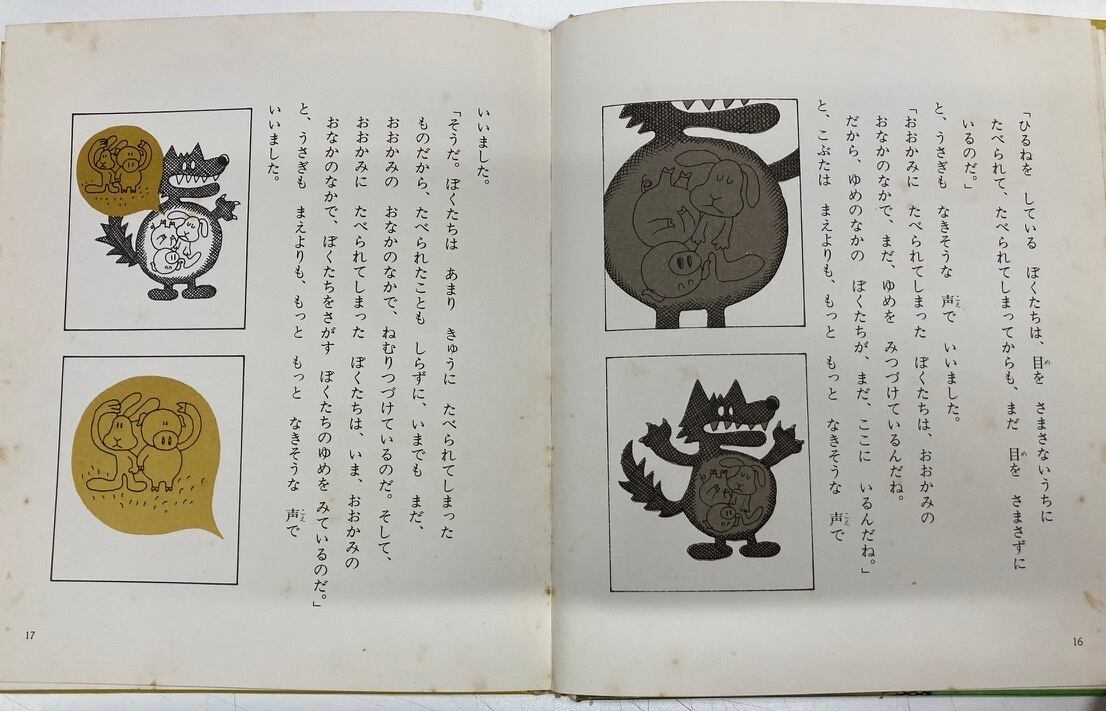 「ひるねを　している　ぼくたちは、目を　さまさないうちに
たべられて、たべられてしまってからも、まだ　目を　さまさずに
いるのだ。」
と、うさぎも　なきそうな　声で　いいました。
「おおかみに　たべられてしまった　ぼくたちは、おおかみの
おなかのなかで、まだ、ゆめを　みつづけているんだね。
だから、ゆめのなかの　ぼくたちが、まだ、ここに　いるんだね。」
と、こぶたは　まえよりも、もっと　もっと　なきそうな　声で
16
いいました。
「そうだ。ぼくたちは　あまり　きゅうに　たべられてしまった
ものだから、たべられたことも　しらずに、いまでも　まだ、
おおかみの　おなかのなかで、ねむりつづけているのだ。そして、
おおかみに　たべられてしまった　ぼくたちは、いま、おおかみの
おなかのなかで、ぼくたちをさがす　ぼくたちのゆめを　みているのだ。」
と、うさぎも　まえよりも、もっと　もっと　なきそうな　声で
いいました。
17